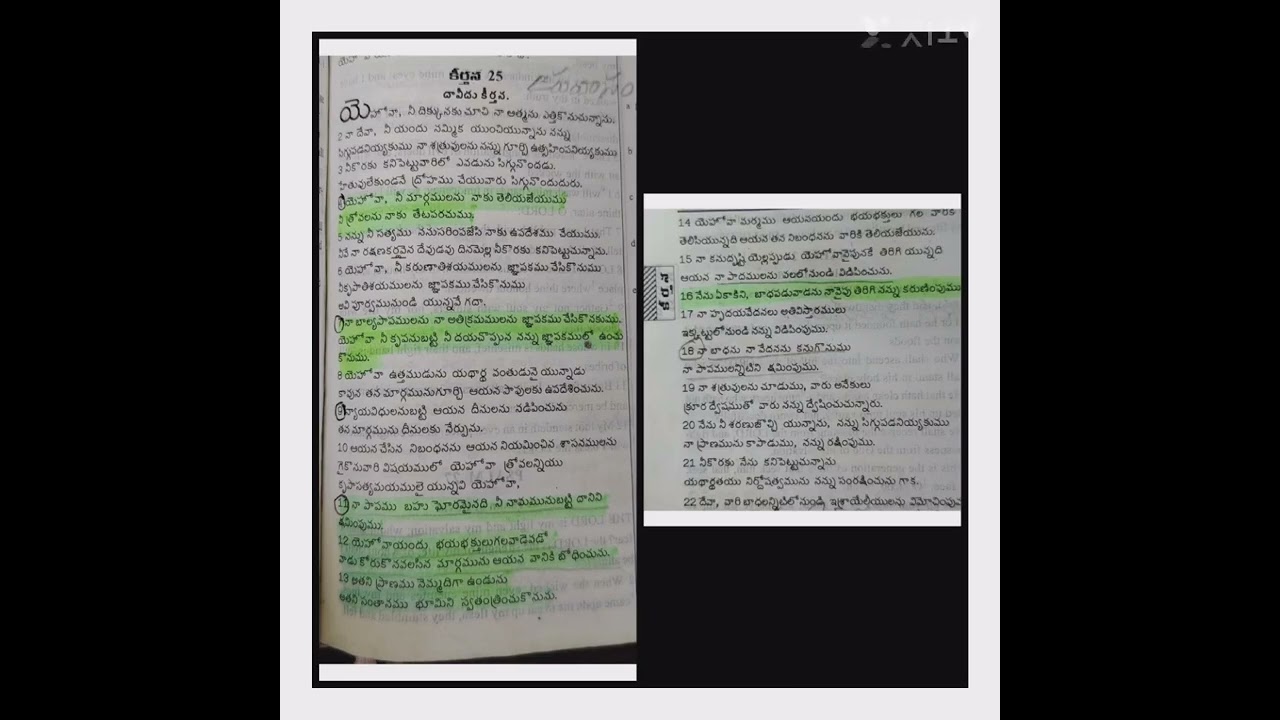 కీర్తన 25
దావీదు కీర్తన.
యెహోవా, నీ దిక్కునకు చూచి నా ఆత్మను ఎత్తికొనుచున్నాను.
2 నా దేవా, నీ యందు నమ్మిక యుంచియున్నాను నన్ను
సిగ్గుపడనియ్యకుము నా శత్రువులను నన్ను గూర్చి ఉత్సహింపనియ్యకుము
3 నీకొరకు కనిపెట్టువారిలో ఎవడును సిగ్గునొందడు.
హేతువులేకుండనే ద్రోహము చేయువారు సిగ్గునొందుదురు.
4 యెహోవా, నీ మార్గములను నాకు తెలియజేయుము
నీ త్రోవలను నాకు తేటపరచుము.
5 నన్ను నీ సత్యము ననుసరింపజేసి నాకు ఉపదేశము చేయుము.
నీవే నా రక్షణకర్తవైన దేవుడవు దినమెల్ల నీకొరకు కనిపెట్టుచున్నాను.
6 యెహోవా, నీ కరుణాతిశయములను జ్ఞాపకము చేసికొనుము
నీకృపాతిశయములను జ్ఞాపకము చేసికొనుము
అవి పూర్వమునుండి యున్నవే గదా.
7 నా బాల్యపాపములను నా అతిక్రమములను జ్ఞాపకము చేసికొనకుము.
యెహోవా నీ కృపనుబట్టి నీ దయచొప్పున నన్ను జ్ఞాపకములో ఉంచు
కొనుము.
8 యెహోవా ఉత్తముడును యథార్థ వంతుడునై యున్నాడు
కావున తన మార్గమునుగూర్చి ఆయన పాపులకు ఉపదేశించును.
9 న్యాయవిధులనుబట్టి ఆయన దీనులను నడిపించును
తన మార్గమును దీనులకు నేర్పును.
10 ఆయన చేసిన నిబంధనను ఆయన నియమించిన శాసనములను
గైకొనువారి విషయములో యెహోవా త్రోవలన్నియు
కృపాసత్యమయములై యున్నవి యెహోవా,
11 నా పాపము బహు ఘోరమైనది నీ నామమునుబట్టి దానిని
క్షమింపుము.
12 యెహోవాయందు భయభక్తులుగలవాడెవడో
వాడు కోరుకొనవలసిన మార్గమును ఆయన వానికి బోధించును.
13 అతని ప్రాణము నెమ్మదిగా ఉండును
అతని సంతానము భూమిని స్వతంత్రించుకొనును.
14 యెహోవా మర్మము ఆయనయందు భయభక్తులు గల వారికి
తెలిసియున్నది ఆయన తన నిబంధనను వారికి తెలియజేయును.
15 నా కనుదృష్టి యెల్లప్పుడు యెహోవావైపునకే తిరిగి యున్నది
ఆయన నా పాదములను వలలోనుండి విడిపించును.
కీర్తన
16 నేను ఏకాకిని, బాధపడువాడను నావైపు తిరిగి నన్ను కరుణింపుము
17 నా హృదయవేదనలు అతివిస్తారములు
ఇక్కట్టులోనుండి నన్ను విడిపింపుము.
18 నా బాధను నా వేదనను కనుగొనుము
నా పాపములన్నిటిని క్షమింపుము.
19 నా శత్రువులను చూడుము, వారు అనేకులు
క్రూర ద్వేషముతో వారు నన్ను ద్వేషించుచున్నారు.
20 నేను నీ శరణుజొచ్చి యున్నాను, నన్ను సిగ్గుపడనియ్యకుము
నా ప్రాణమును కాపాడుము, నన్ను రక్షింపుము.
21 నీకొరకు నేను కనిపెట్టుచున్నాను
యథార్థతయు నిర్దోషత్వమును నన్ను సంరక్షించును గాక.
22 దేవా, వారి బాధలన్నిటిలోనుండి ఇశ్రాయేలీయులను విమోచింపుము